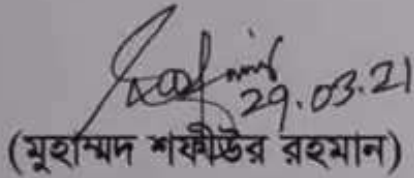 29.03.21
(মুহাম্মদ শফীউর রহমান)